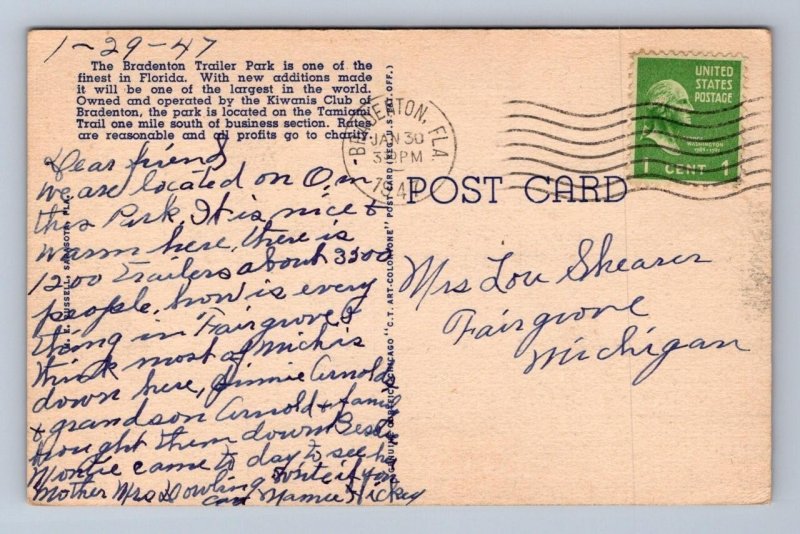 1-29-47
The Bradenton Trailer Park is one of the
finest in Florida. With new additions made
it will be one of the largest in the world.
Owned and operated by the Kiwanis Club of
Bradenton, the park is located on the Tamiami
Trail one mile south of business section. Rates
are reasonable and all profits go to charity.
Dear friend
we are located on O.m
this Park, It is nice &
warm here, there is
1200 Trailers about 3500
people, how is every
thing in Fairgrove I
think most of Mich is
down here, Jimmie Arnold,
& grandson Arnold & family
brought them down Bess
Montie came to day to see her
Mother Mrs Dowling write if you
can Mamie Hickey
RUSSELL, SARASOTA, FLA.
POST CARD (REG. U.S. PAT. OFF.)
"C.T. ART-COLORTONE"
CHICAGO
BRADENTON, FLA
JAN 30
3 PM
1947
UNITED
STATES
POSTAGE
WASHINGTON
1 CENT 1
POST CARD
Mrs Lou Shearer
Fairgrove
Michigan